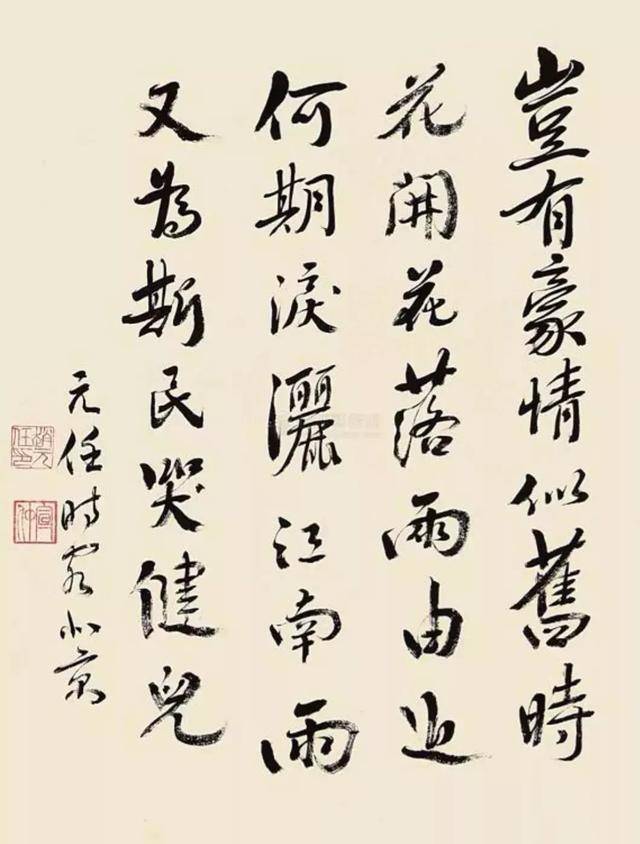 豈有豪情似舊時
花開花落兩由之
何期淚灑江南雨
又為斯民哭健兒
元任时客北京
趙元任印
宣仲